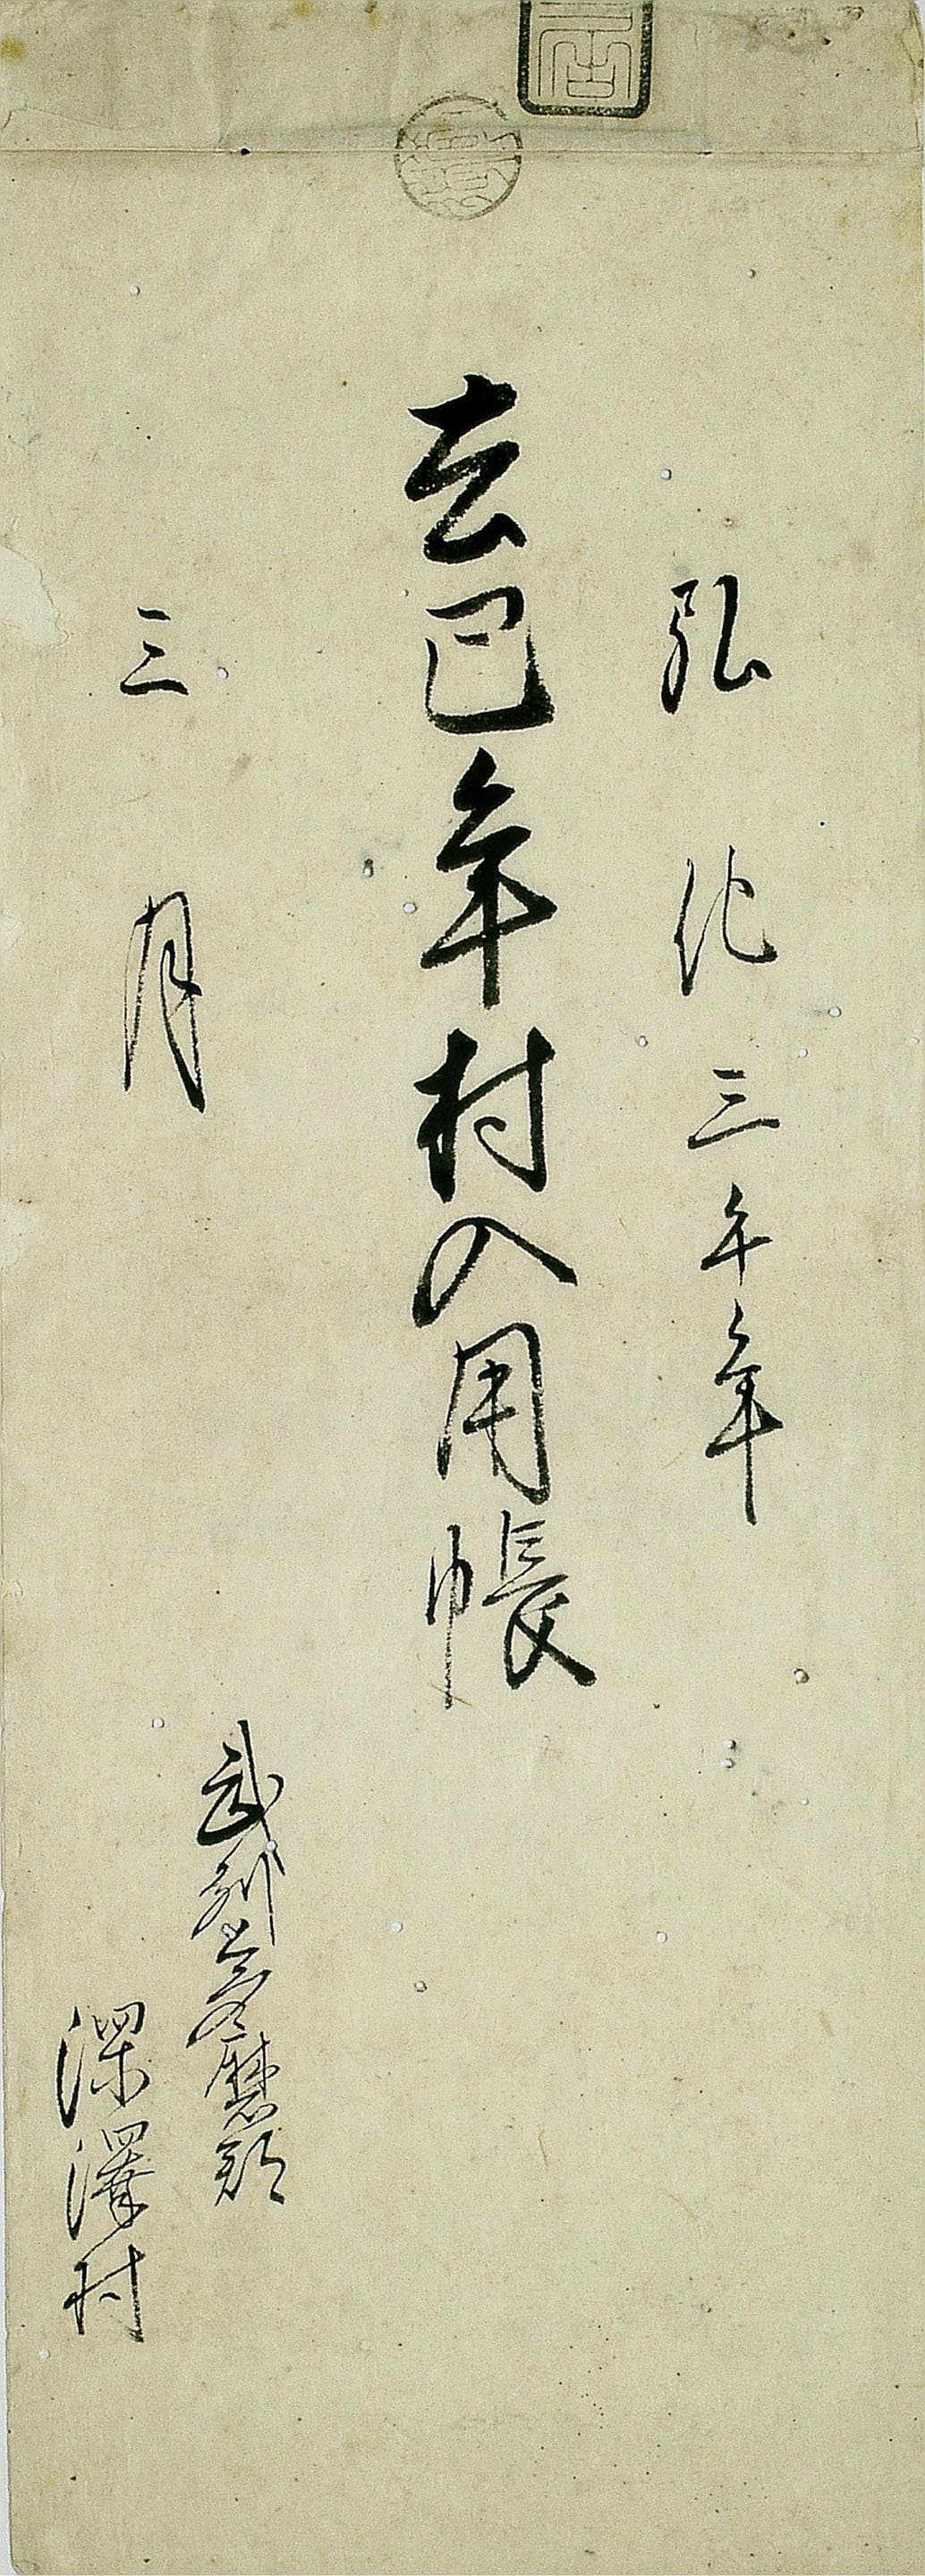 弘化三午年
去巳年村入用帳
三月
武州多摩郡
深澤村